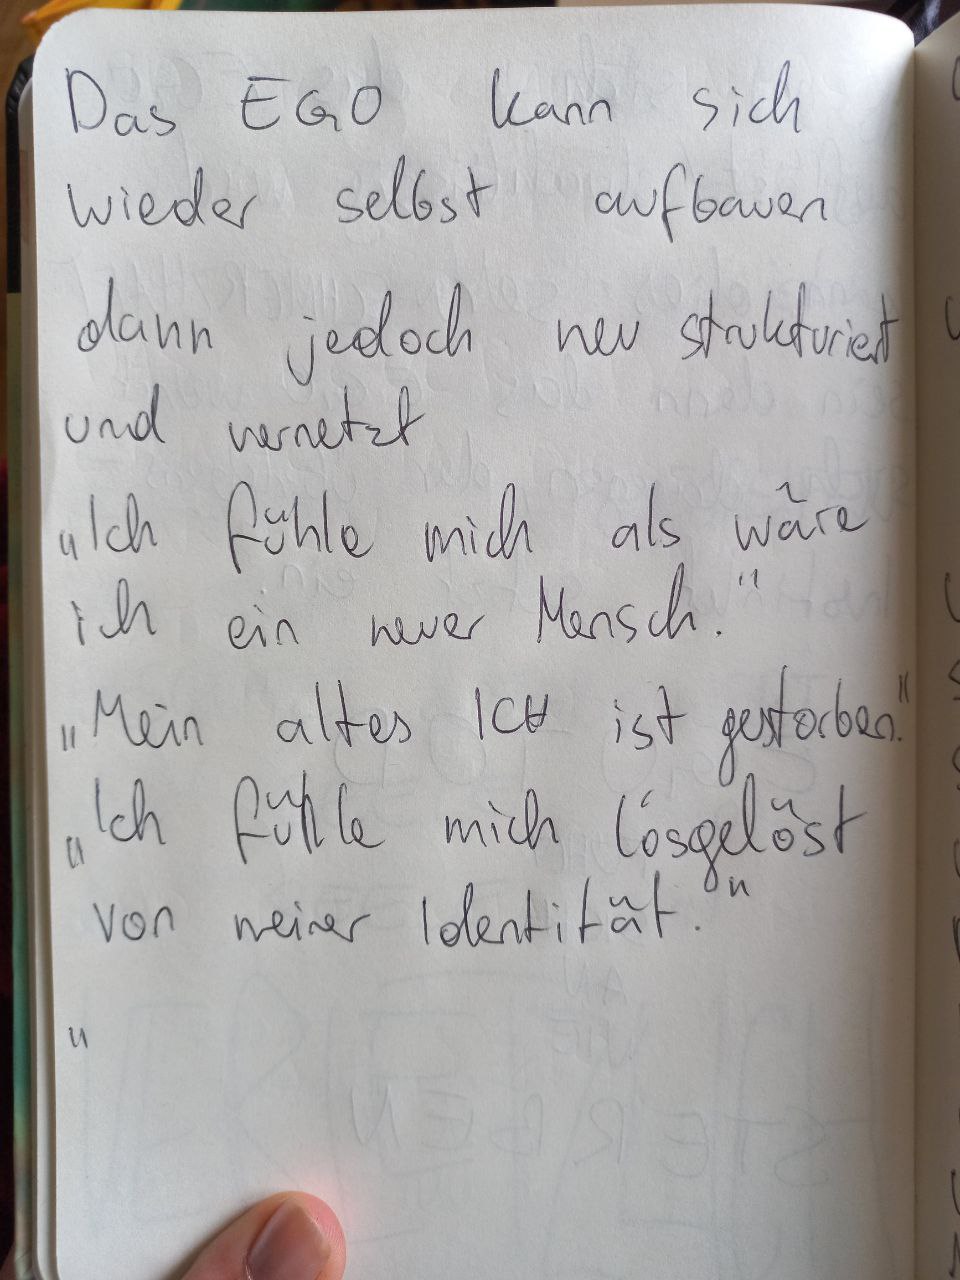 Das EGO kann sich
wieder selbst aufbauen
dann jedoch neu strukturiert
und vernetzt
„Ich fühle mich als wäre
ich ein neuer Mensch."
„Mein altes ICH ist gestorben."
„Ich fühle mich losgelöst
von meiner Identität."
„